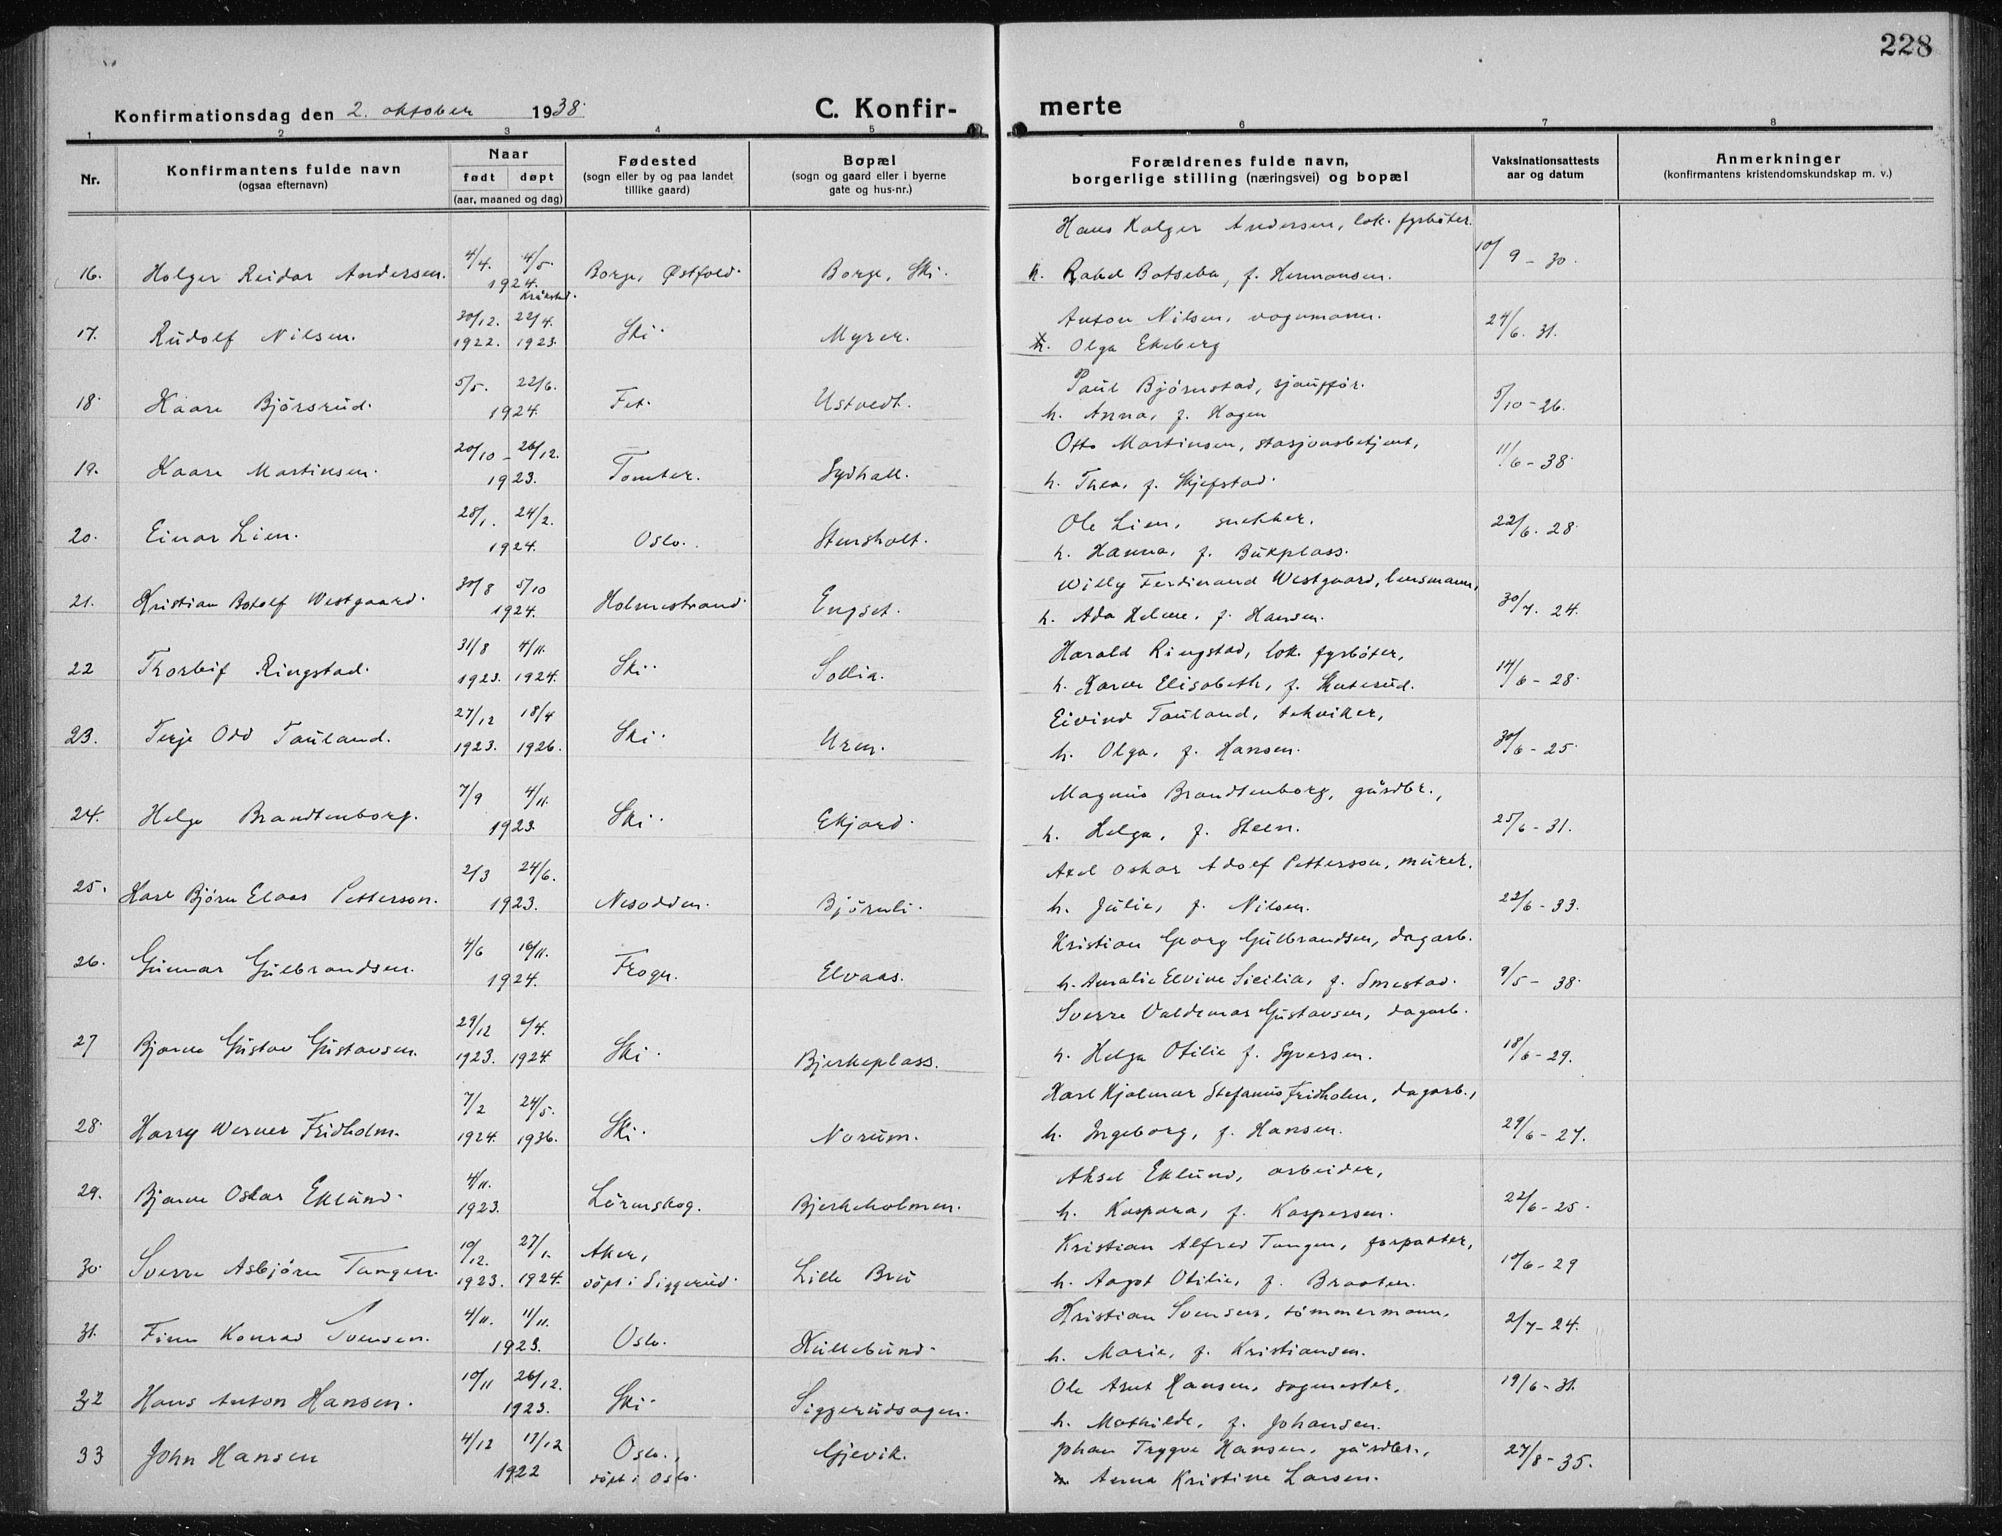 228
Konfirmationsdag den 2. oktober 1938. C. Konfir- merte
1 2 3 4 5 6 7 8
Nr. Konfirmantens fulde navn (ogsaa efternavn) Naar født døpt (aar, maaned og dag) Fødested (sogn eller by og paa landet tillike gaard) Bopæl (sogn og gaard eller i byerne gate og hus-nr.) Forældrenes fulde navn, borgerlige stilling (næringsvei) og bopæl Vaksinationsattests aar og datum Anmerkninger (konfirmantens kristendomskundskap m. v.)
Hans Holger Andersen, lok. fyrbøter.
16. Holger Reidar Andersen. 4/4. 4/5. 1924. Borge, Østfold. Borge, Ski. h. Rakel Batseba, f. Hermansen. 10/9 - 30.
Kråkstad.
Anton Nilsen, vognmann.
17. Rudolf Nilsen. 30/12. 1922. 22/4. 1923. Ski. Myrer. h. Olga Ekeberg 24/6. 31.
Paul Bjørnstad, sjauffør.
18. Kaare Bjørsrud. 5/5. 22/6. 1924. Fet. Ustvedt. h. Anna, f. Hagen 5/10 - 26.
Otto Martinsen, stasjonsbetjent,
19. Kaare Martinsen. 20/10 - 26/12. 1923. Tomter. Sydhall. h. Thea, f. Skjefstad. 11/6 - 38.
Ole Lien, snekker,
20. Einar Lien. 28/1. 24/2. 1924. Oslo. Stensholt. h. Hanna, f. Bukplass. 22/6. 28.
Willy Ferdinand Westgaard, lensmann,
21. Kristian Botolf Westgaard. 30/8 5/10 1924. Holmestrand. Engset. h. Ada Helene, f. Hansen. 30/7. 24.
Harald Ringstad, lok. fyrbøter,
22 Thorleif Ringstad. 31/8 1923. 4/11. 1924. Ski. Sollia. h. Karen Elisabeth, f. Skuterud. 14/6 - 28.
Eivind Tauland, tekniker,
23. Terje Odd Tauland. 27/12 1923. 18/4 1926. Ski. Uren. h. Olga, f. Hansen. 30/6 - 25.
Magnus Brandtenborg, gårdbr.,
24. Helge Brandtenborg. 7/9 4/11. 1923. Ski. Ekjord. h. Helga, f. Steen. 25/6 - 31.
Axel Oskar Adolf Petterson, murer.
25. Karl Bjørn Elaas Petterson. 2/3 24/6. 1923. Nesodden. Bjørnli. h. Julie, f. Nilsen. 22/6 - 33.
Kristian Georg Gulbrandsen, dagarb.
26. Gunnar Gulbrandsen. 4/6 16/11. 1924. Frogn. Elvaas. h. Amalie Elvine Sicilia, f. Smestad. 9/5 - 38.
Sverre Valdemar Gustavsen, dagarb.
27 Bjarne Gustav Gustavsen. 29/12 1923. 6/4. 1924 Ski. Bjerkeplass. h. Helga Otilie f. Syversen. 18/6 - 29.
Karl Hjalmar Stefanus Fridholm, dagarb.,
28. Harry Werner Fridholm. 7/2 1924. 24/5. 1936. Ski. Norum. h. Ingeborg, f. Hansen. 29/6 - 27.
Aksel Eklund, arbeider,
29. Bjarne Oskar Eklund. 4/11. 1923. Lørenskog. Bjerkeholmen. h. Kaspara, f. Kaspersen. 22/6 - 25.
Kristian Alfred Tangen, forpakter,
30. Sverre Asbjørn Tangen. 10/12. 1923. 27/1. 1924. Aker, døpt i Siggerud. Lille Bru h. Aagot Otilie, f. Braaten. 10/6 - 29
Kristian Svensen, tømmermann,
31. Finn Konrad Svensen. 4/11. 11/11. 1923. Oslo. Kullebund. h. Marie, f. Kristiansen. 2/7 - 24.
Ole Arnt Hansen, sagmester,
32 Hans Anton Hansen. 10/11 26/12. 1923. Ski. Siggerudsagen. h. Mathilde, f. Johansen. 19/6 - 31.
Johan Trygve Hansen, gårdbr.,
33 John Hansen 4/12 17/12 1922 Oslo., døpt i Oslo. Gjevik. Anna Kristine Larsen. 27/8 - 35.